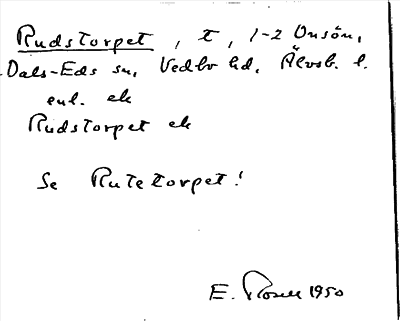 Rudstorpet, t, 1-2 Onsön,
Dals-Eds sn, Vedbo hd, Älvsb. l.
enl. ek
Rudstorpet ek
Se Rutetorpet!
E. Rosell 1950